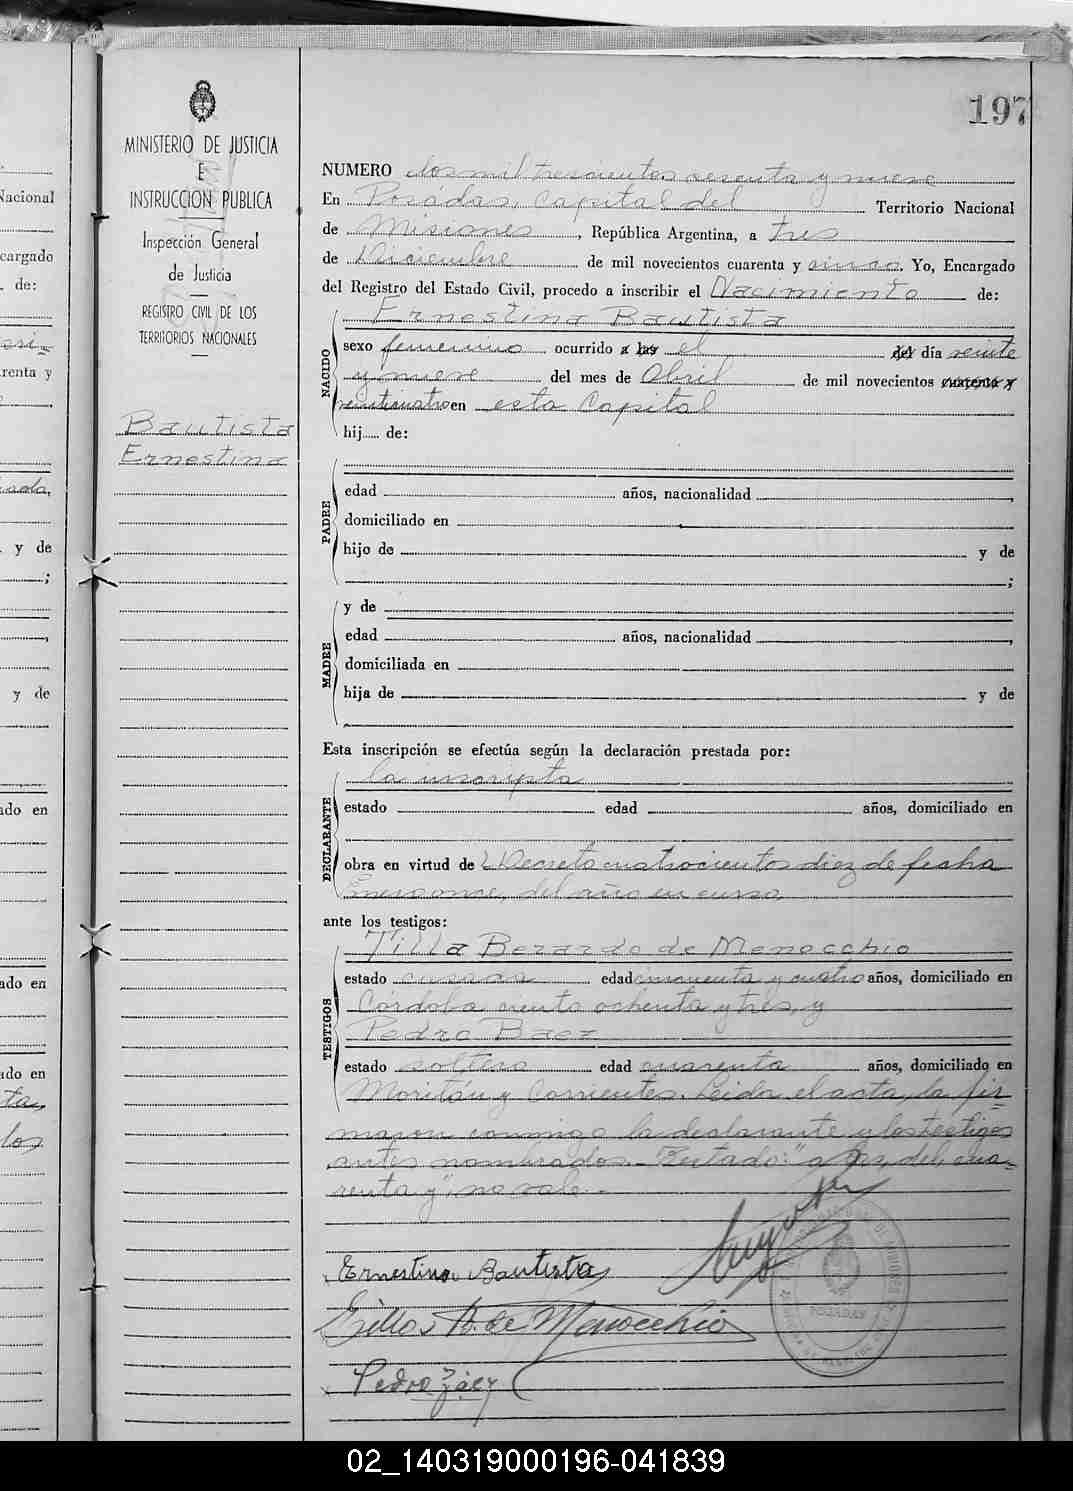 197
MINISTERIO DE JUSTICIA
E
INSTRUCCION PUBLICA
Inspección General
de Justicia
REGISTRO CIVIL DE LOS
TERRITORIOS NACIONALES
Bautista
Ernestina
NUMERO dos mil trescientos sesenta y nueve
En Posadas, Capital del Territorio Nacional
de Misiones, República Argentina, a tres
de Diciembre de mil novecientos cuarenta y cinco. Yo, Encargado
del Registro del Estado Civil, procedo a inscribir el Nacimiento de:
NACIDO
Ernestina Bautista
sexo femenino ocurrido a las el del día veinte
y nueve del mes de Abril de mil novecientos cuarenta y
veinticuatro en esta Capital
hij de:
PADRE
edad años, nacionalidad ,
domiciliado en
hijo de y de
;
MADRE
y de
edad años, nacionalidad ,
domiciliada en
hija de y de
Esta inscripción se efectúa según la declaración prestada por:
DECLARANTE
la inscripta
estado edad años, domiciliado en
obra en virtud de Decreto cuatrocientos diez de fecha
Enero once, del año en curso,
ante los testigos:
TESTIGOS
Tilla Berardo de Menocchio
estado casada edad cincuenta y cuatro años, domiciliado en
Córdoba ciento ochenta y tres, y
Pedro Baez
estado soltero edad cuarenta años, domiciliado en
Moritán y Corrientes. Leida el acta, la fir-
maron conmigo la declarante y los testigos
antes nombrados.- Testado: "a las, del, cua-
renta y", no vale.-
Ernestina Bautista
B. de Menocchio
Pedro Báez
POSADAS
Nacional
cargado
de:
renta y
y de
;
,
y de
ado en
ado en
ado en
los
02_140319000196-041839